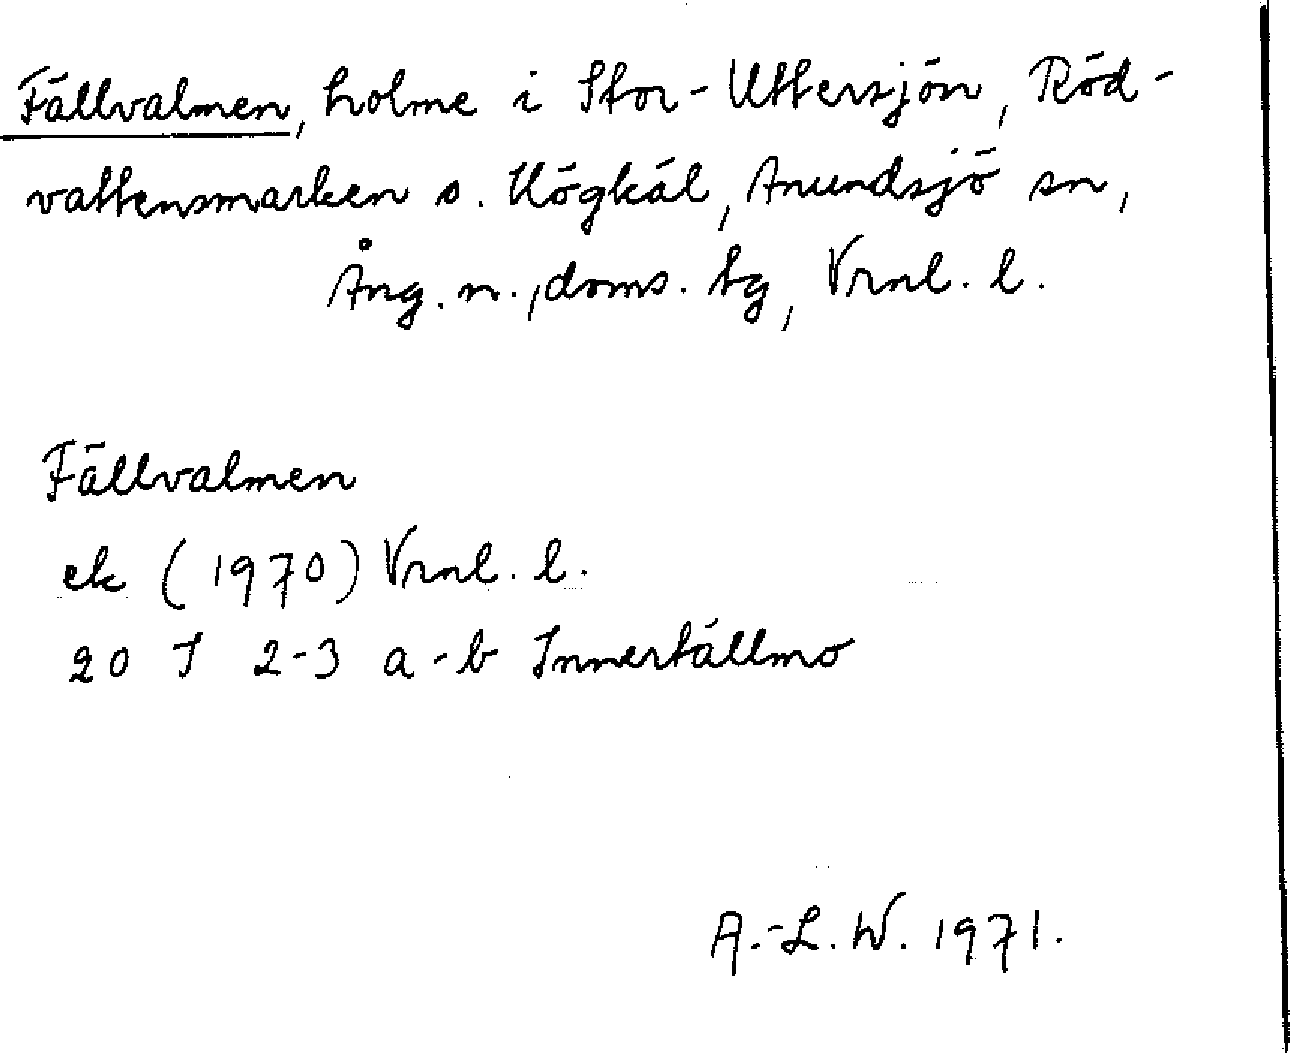 Fällvalmen, holme i Stor-Uttersjön, Röd-
vattensmarken o. Högkål, Anundsjö sn,
Ång. n., doms. tg, Vrnl. l.
Fällvalmen
ek (1970) Vrnl. l.
20 J 2-3 a-b Innertällmo
A.-L. W. 1971.